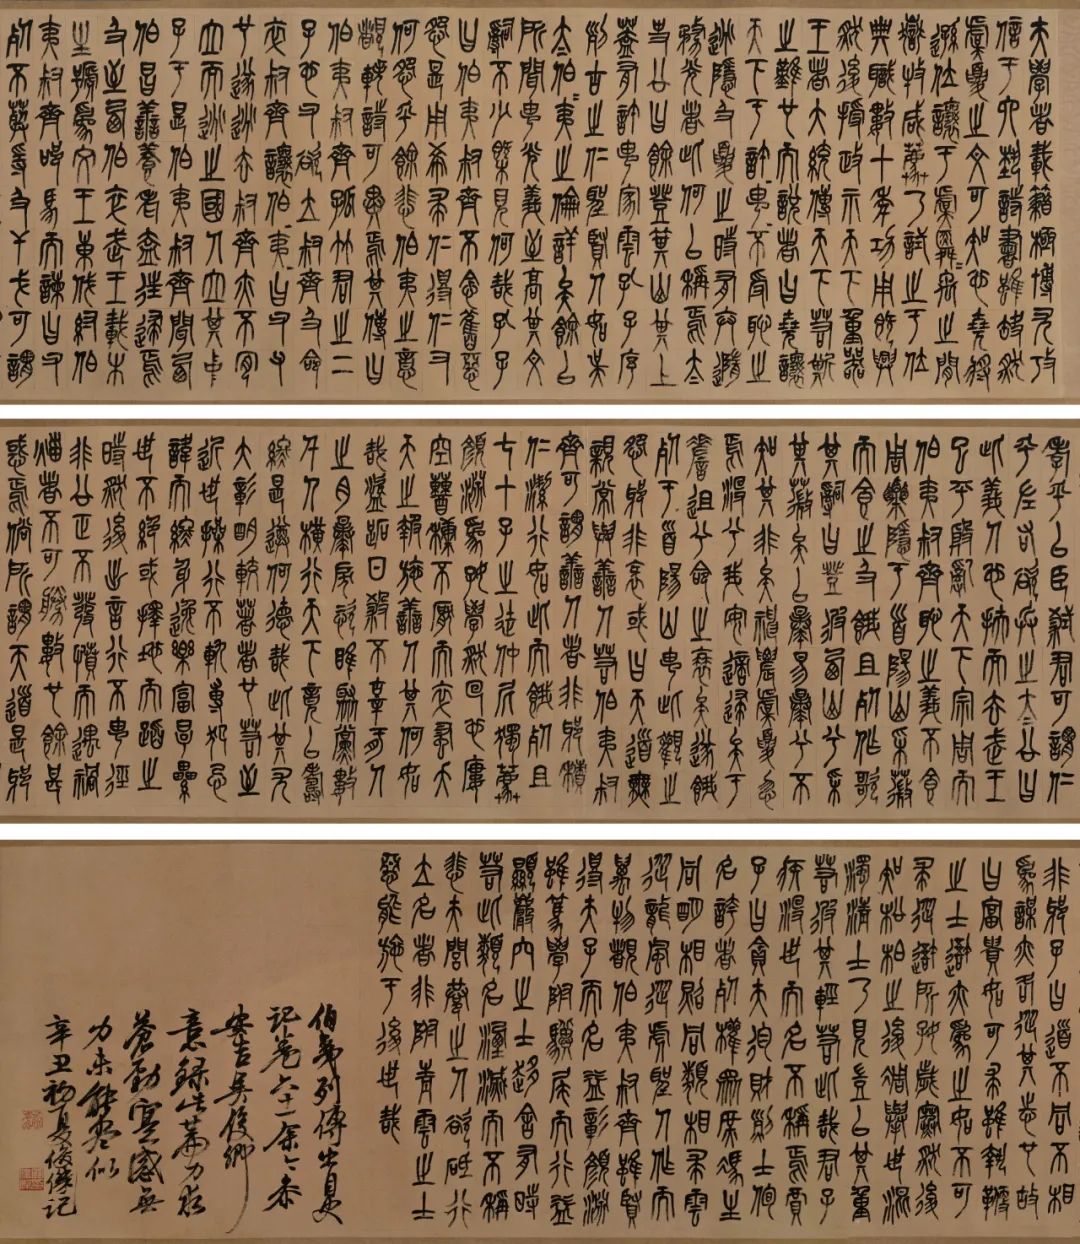 夫學者載籍極博尤考
信于六埶詩書雖缺然
虞夏之文可知也堯將
遜位讓于虞舜=禹之間
嶽牧咸薦乃試之于位
典職數十年功用既興
然後授政示天下重器
王者大統傳天下若斯
之難也而說者曰堯讓
天下于許=由=不受恥之
逃隱及夏之時有卞隨
務光者此何以稱焉太
史公曰餘登箕山其上
蓋有許由冢雲孔子序
列古之仁聖賢人如吳
太伯=夷之倫詳矣餘以
所聞由光義至高其文
辭不少槩見何哉孔子
曰伯夷叔齊不念舊惡
怨是用希求仁得仁又
何怨乎餘悲伯夷之意
覩軼詩可異焉其傳曰
伯夷叔齊孤竹君之二
子也父欲立叔齊及父
卒叔齊讓伯=夷=曰父命
也遂逃去叔齊亦不肎
立而逃之國人立其中
子于是伯夷叔齊聞西
伯昌善養老盍往歸焉
及至西伯卒武王載木
主號爲文王東伐紂伯
夷叔齊叩馬而諫曰父
死不葬爰及干戈可謂
孝乎以臣弒君可謂仁
乎左右欲兵之太公曰
此義人也扶而去武王
已平殷亂天下宗周而
伯夷叔齊恥之義不食
周粟隱于首陽山采薇
而食之及餓且死作歌
其辭曰登彼西山兮采
其薇矣以暴易暴兮不
知其非矣神農虞夏忽
焉沒兮我安適歸矣于
嗟徂兮命之衰矣遂餓
死于首陽山由此觀之
怨邪非邪或曰天道無
親常與善人若伯夷叔
齊可謂善人者非邪積
仁潔行如此而餓死且
七十子之徒仲尼獨薦
顏淵爲好學然回也屢
空糟穅不厭而卒蚤夭
天之報施善人其何如
哉盜跖日殺不辜肝人
之肉暴戾恣睢聚黨數
千人橫行天下竟以壽
終是遵何德哉此其尤
大彰明較著者也若至
近世操行不軌專犯忌
諱而終身逸樂富厚纍
世不絕或擇地而蹈之
時然後出言行不由徑
非公正不發憤而遇禍
災者不可勝數也餘甚
惑焉儻所謂天道是邪
非邪子曰道不同不相
爲謀亦各從其志也故
曰富貴如可求雖執鞭
之士吾亦爲之如不可
求從吾所好歲寒然後
知松柏之後凋舉世混
濁清士乃見豈以其重
若彼其輕若此哉君子
疾沒世而名不稱焉賈
子曰貪夫徇財烈士徇
名夸者死權衆庶馮生
同明相照同類相求雲
從龍風從虎聖人作而
萬物覩伯夷叔齊雖賢
得夫子而名益彰顏淵
雖篤學附驥尾而行益
顯巖穴之士趨舍有時
若此類名湮滅而不稱
悲夫閭巷之人欲砥行
立名者非附青雲之士
惡能施于後世哉
伯夷列傳出自史
記卷六十一余亦
安吉吳俊卿
意錄此篇乃
蒼勁寬盛
力未能尽似
辛丑初夏俊傑記